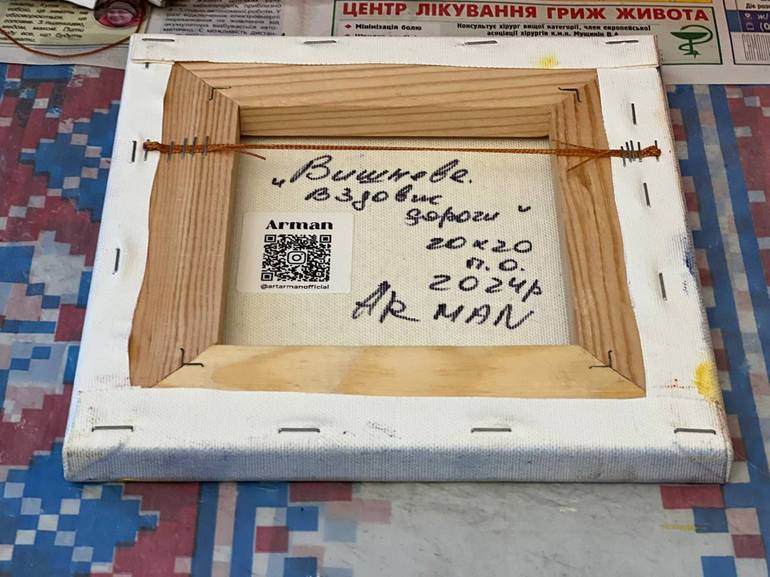 ЦЕНТР ЛІКУВАННЯ ГРИЖ ЖИВОТА
• Мінімізація болю
Консультує хірург вищої категорії, член європейської
асоціації хірургів к.м.н. Мущинін В.А
„Вишневе.
вздовж
дороги"
20х20
п.о.
2024р
ARMAN
Arman
@artarmanofficial